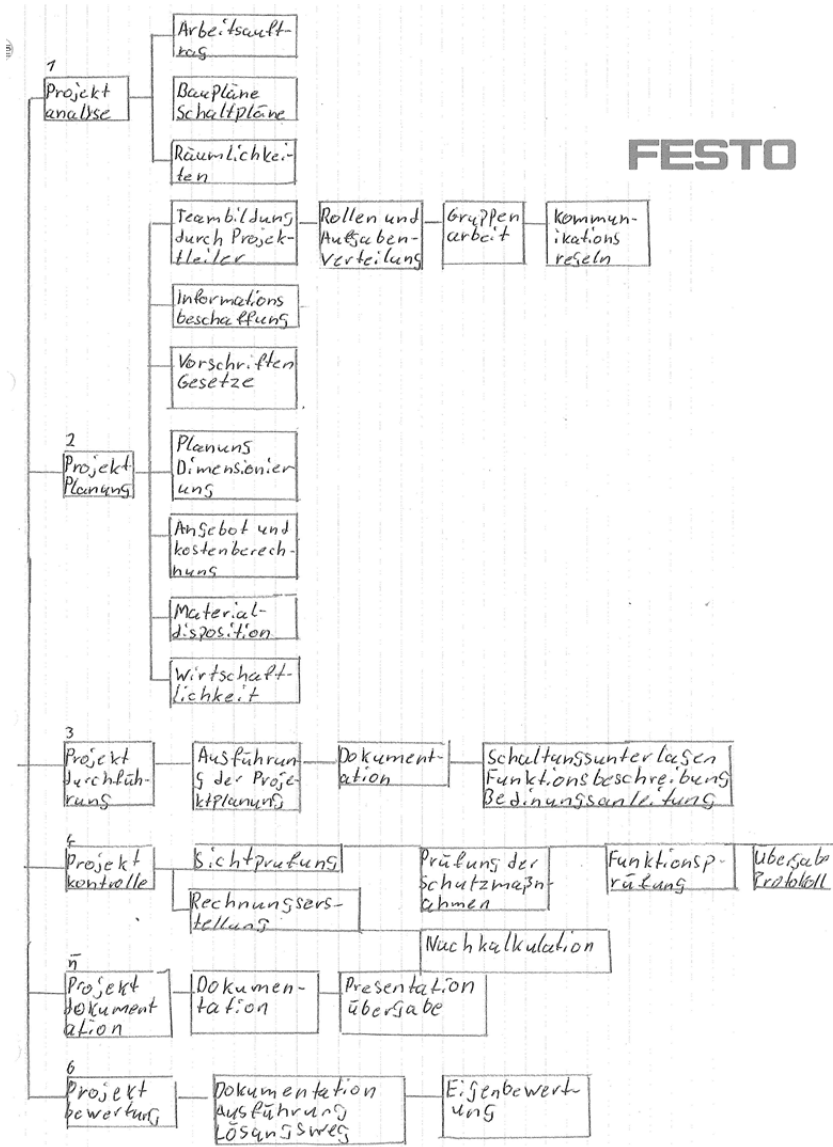 Arbeitsauft-
rag
1
Projekt
analyse
Baupläne
Schaltpläne
Räumlichkei-
ten
FESTO
Teambildung
durch Projek-
tleiter
Rollen und
Aufgaben-
verteilung
Gruppen
arbeit
Kommun-
ikations
regeln
Informations
beschaffung
Vorschriften
Gesetze
2
Projekt
Planung
Planung
Dimensionier
ung
Angebot und
kostenberech-
nung
Material-
disposition
Wirtschaft-
lichkeit
3
Projekt
durchfüh-
rung
Ausführun
g der Proje-
ktplanung
Dokument-
ation
Schaltungsunterlagen
Funktionsbeschreibung
Bedinungsanleitung
4
Projekt
kontrolle
Sichtprüfung
Prüfung der
Schutzmaßn-
ahmen
Funktionsp-
rüfung
Übergabe
Protokoll
Rechnungsers-
tellung
Nachkalkulation
5
Projekt
dokument
ation
Dokumen-
tation
Presentation
übergabe
6
Projekt
bewertung
Dokumentation
Ausführung
Lösungsweg
Eigenbewert-
ung